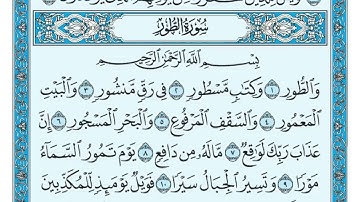 سُورَةُ الطُّورِ
بِسْمِ اللَّهِ الرَّحْمَٰنِ الرَّحِيمِ
وَالطُّورِ ١ وَكِتَابٍ مَّسْطُورٍ ٢ فِي رَقٍّ مَّنشُورٍ ٣ وَالْبَيْتِ
الْمَعْمُورِ ٤ وَالسَّقْفِ الْمَرْفُوعِ ٥ وَالْبَحْرِ الْمَسْجُورِ ٦ إِنَّ
عَذَابَ رَبِّكَ لَوَاقِعٌ ٧ مَّا لَهُ مِن دَافِعٍ ٨ يَوْمَ تَمُورُ السَّمَاءُ
مَوْرًا ٩ وَتَسِيرُ الْجِبَالُ سَيْرًا ١٠ فَوَيْلٌ يَوْمَئِذٍ لِّلْمُكَذِّبِينَ